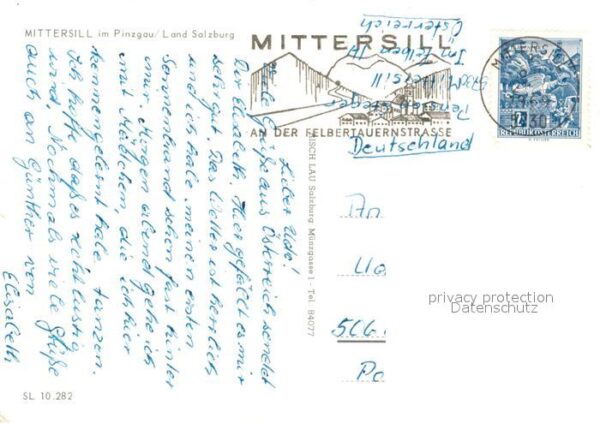 MITTERSILL im Pinzgau/Land Salzburg
MITTERSILL
AN DER FELBERTAUERNSTRASSE
MITTERSILL
REPUBLIK ÖSTERREICH
Pension
5730 Mittersill
Österreich
Deutschland
Lieber Udo!
Viele Grüße aus Österreich sendet
Dir Elisabeth. Hier gefällt es mir
sehr gut. Das Wetter ist herrlich
und ich habe meinen ersten
Sonnenbrand schon fast hinter
mir. Morgen abend gehe ich
mit Mädchen, die ich hier
kennengelernt habe tanzen.
Ich hoffe daß es recht lustig
wird. Nochmals viele Grüße
auch an Günther von
Elisabeth
LAU Salzburg Münzgasse 1 - Tel. 84077
An
privacy protection
Datenschutz
SL 10.282